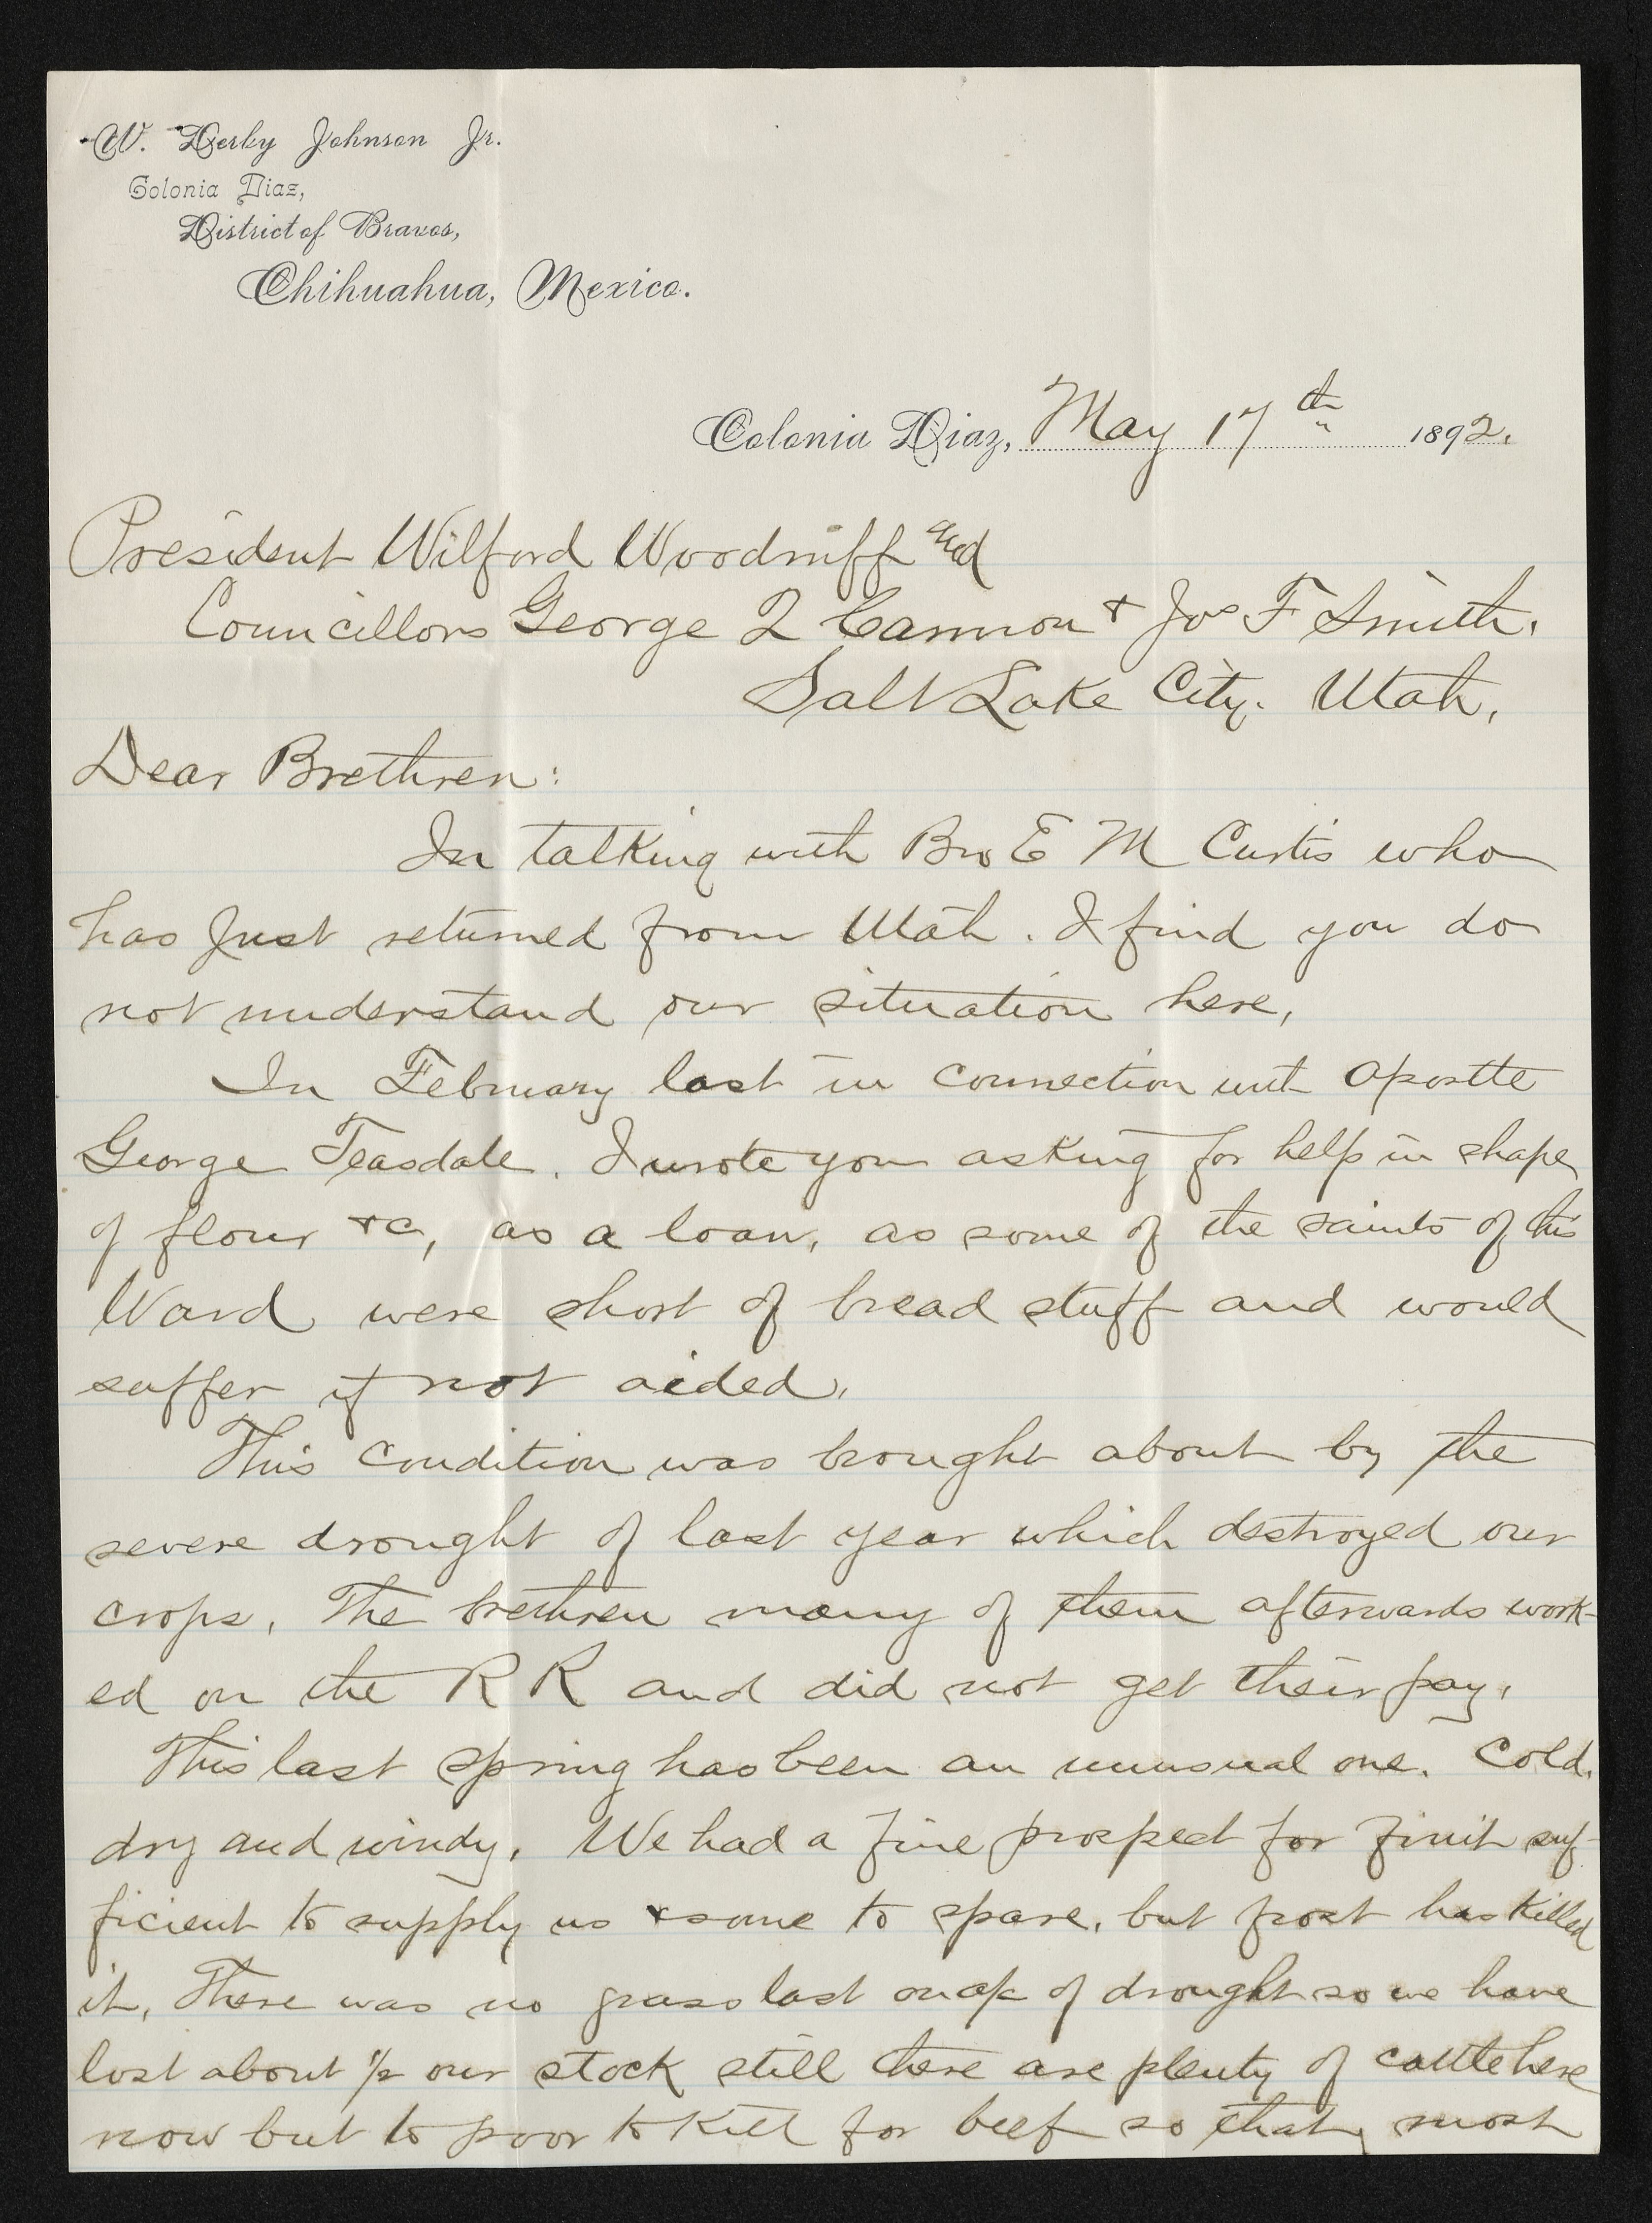 W. Derby Johnson Jr.
Colonia Diaz,
District of Bravos,
Chihuahua, Mexico.
Colonia Diaz, May 17th 1892.
President Wilford Woodruff and
Councillors George Q Cannon & Jos F Smith.
Salt Lake City. Utah.
Dear Brethren:
In talking with Bro E M Curtis who
has just returned from Utah. I find you do
not understand our situation here,
In February last in connection with Apostle
George Teasdale. I wrote you asking for help in shape
of flour &c, as a loan, as some of the saints of this
Ward were short of bread stuff and would
suffer if not aided.
This condition was brought about by the
severe drought of last year which destroyed our
crops. The brethren many of them afterwards work-
ed on the R R and did not get their pay.
This last spring has been an unusual one. Cold.
dry and windy. We had a fine prospect for fruit suf-
ficient to supply us & some to spare, but frost has killed
it. There was no grass last of drought so we have
lost about 1/2 our stock still there are plenty of cattle here
now but to poor to kill for beef so that most